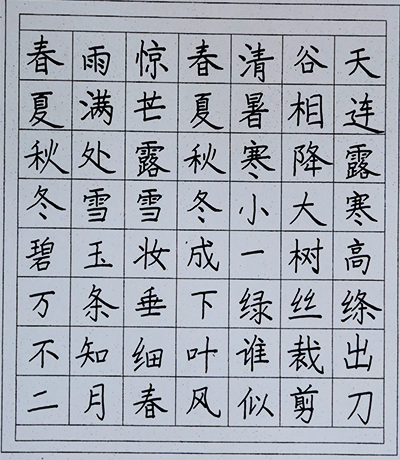 春雨惊春清谷天
夏满芒夏暑相连
秋处露秋寒降露
冬雪雪冬小大寒
碧玉妆成一树高
万条垂下绿丝绦
不知细叶谁裁出
二月春风似剪刀